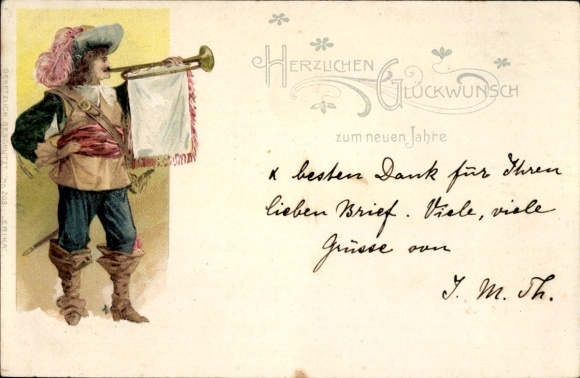 HERZLICHEN
GLÜCKWUNSCH
zum neuen Jahre
& besten Dank für Ihren
lieben Brief. Viele, viele
Grüsse von
J. M. Th.
GESETZLICH GESCHÜTZT. No. 263 „ERIKA”